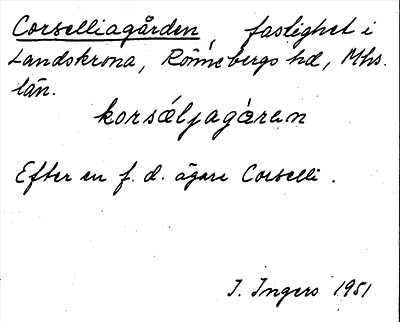 Corselliagården, fastighet i
Landskrona, Rönnebergs hd, Mhs.
län.
korsäljagåren
Efter en f. d. ägare Corselli.
I. Ingers 1951